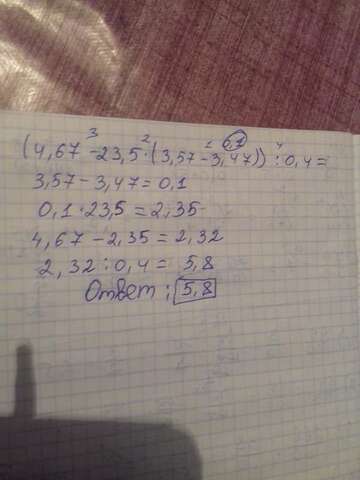 3 2 1 0,1 4
(4,67 - 23,5 · (3,57 - 3,47)) : 0,4 =
3,57 - 3,47 = 0,1
0,1 · 23,5 = 2,35
4,67 - 2,35 = 2,32
2,32 : 0,4 = 5,8
Ответ: 5,8